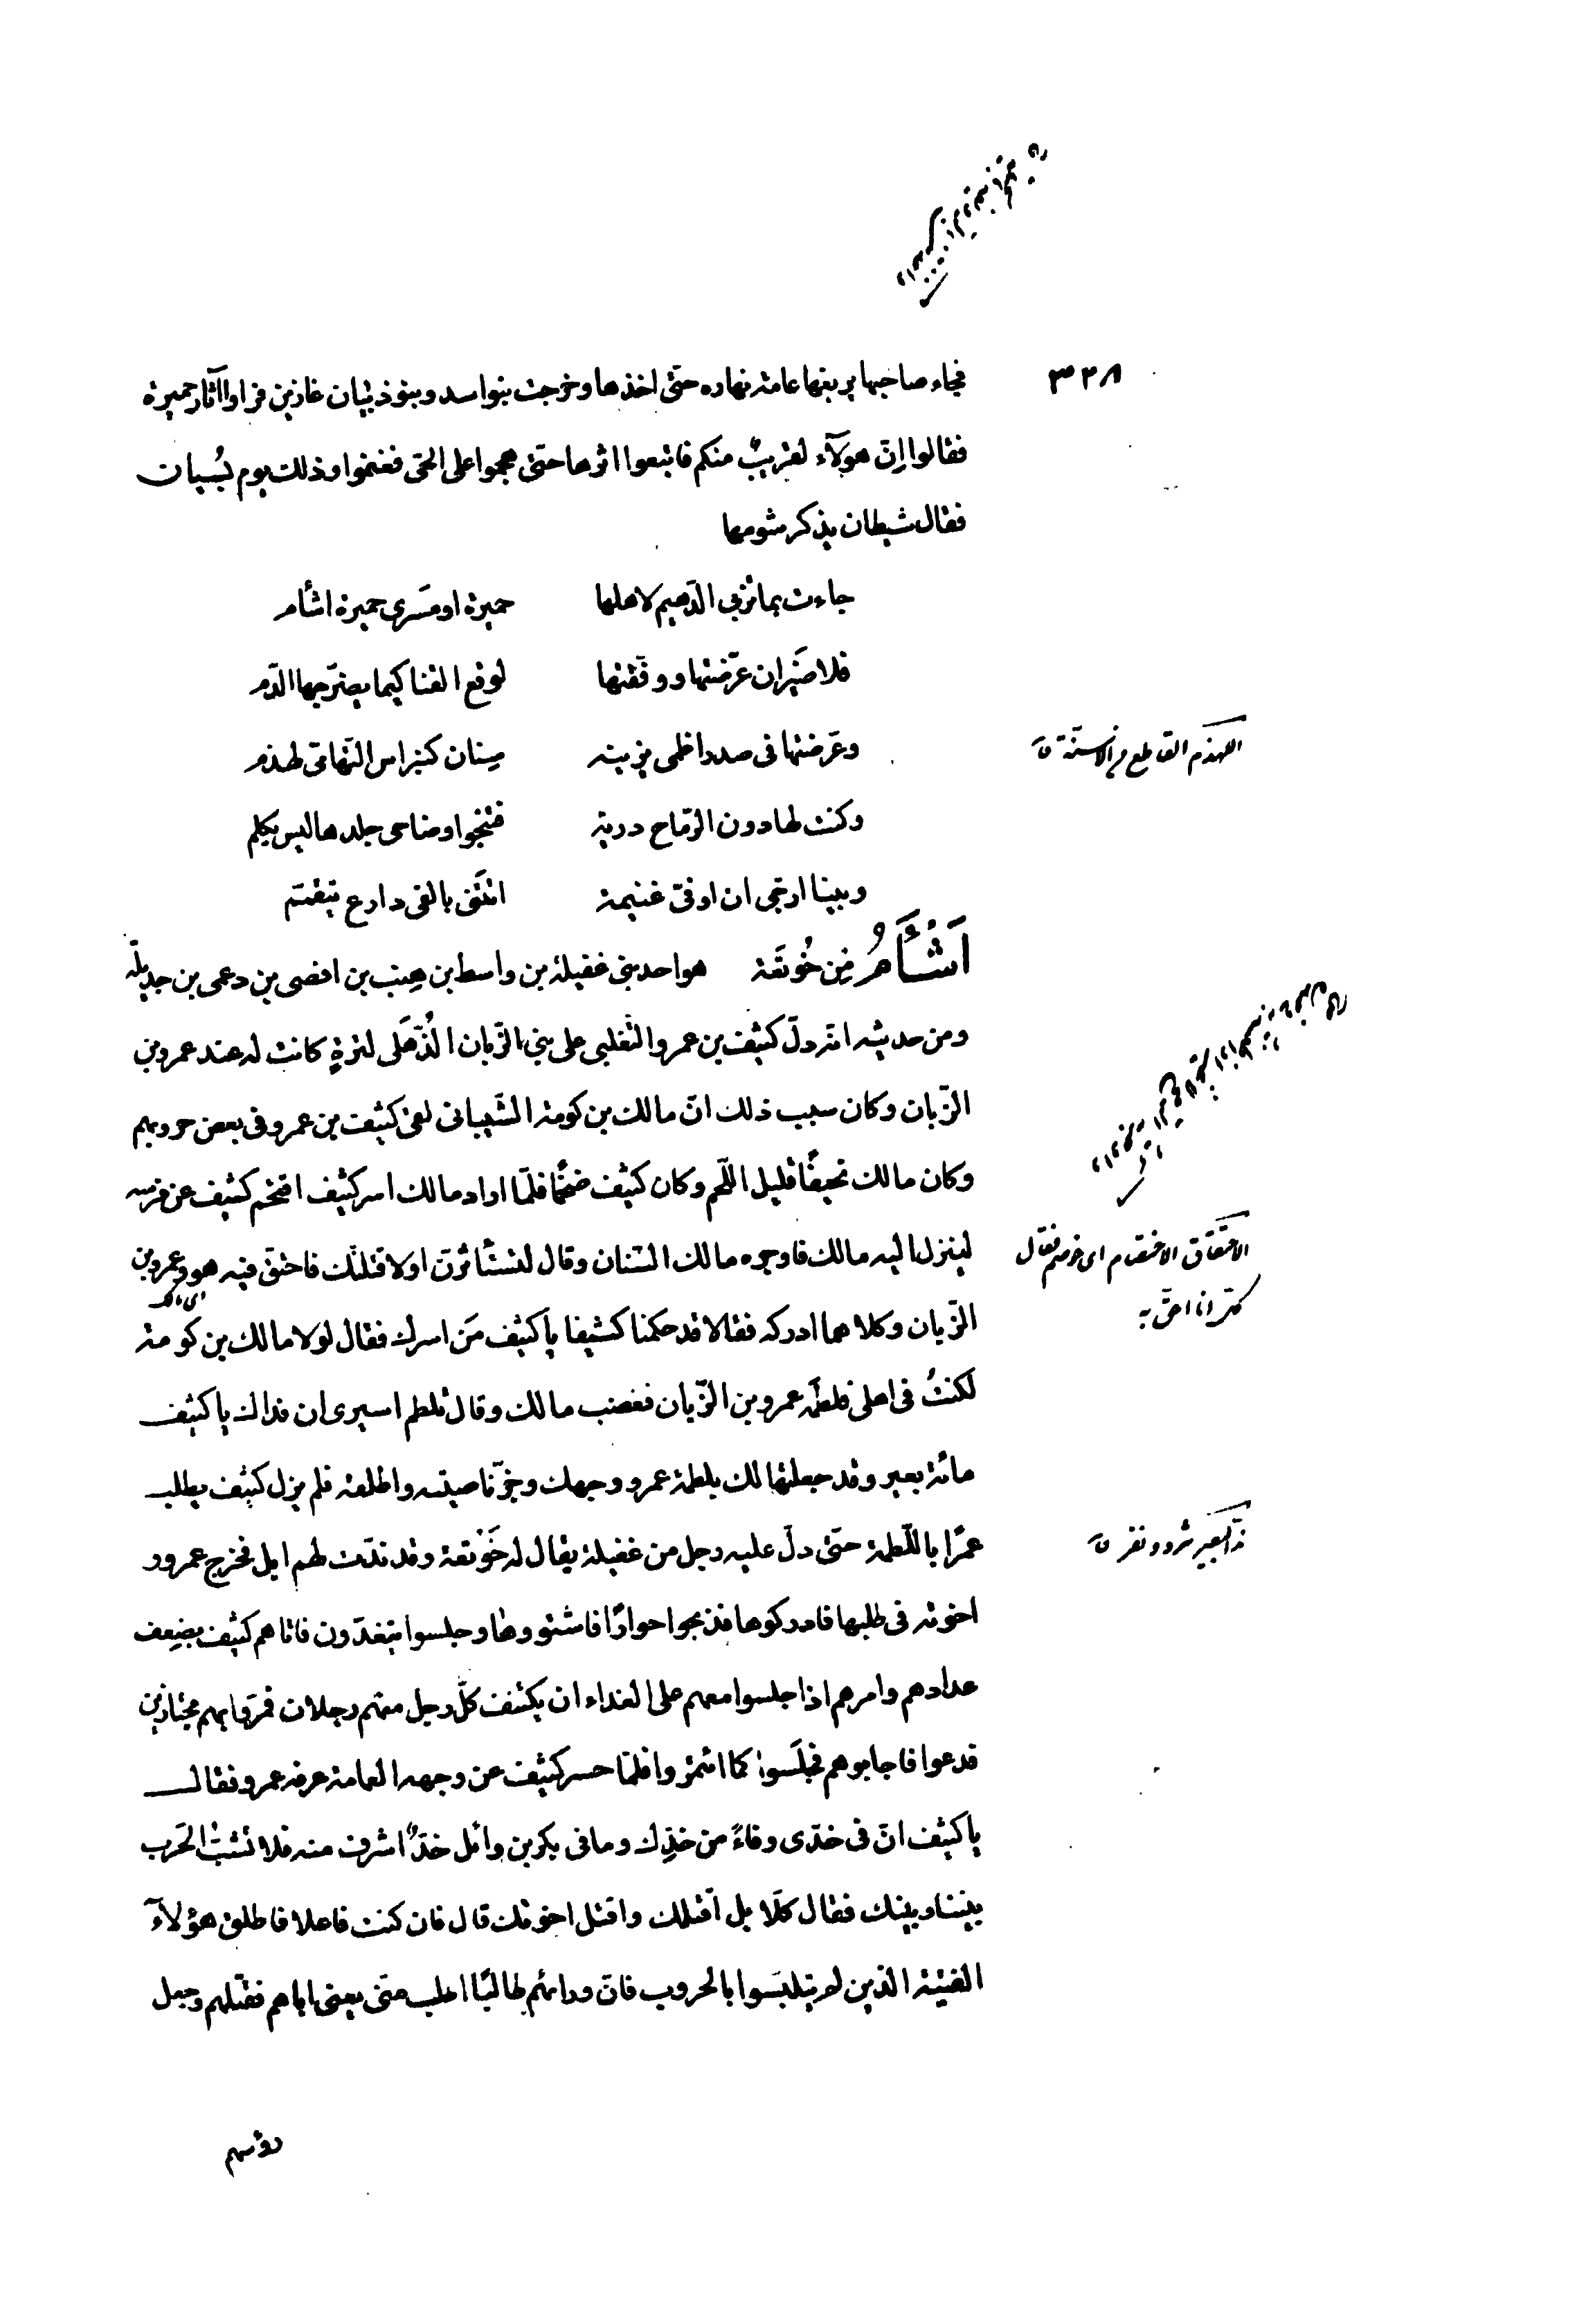 ٣٣٨
فجاء صاحبها يريغها عامة نهاره حتّى اخذها وخرجت بنو اسد وبنو ذبيان غازين فراوا آثار حميرة
فقالوا اِنّ هولآء لقريبٌ منكم فاتبعوا اثرها حتّى هجموا على الحىّ فغنموا وذلك يوم بُسيان
فقال شيطان يذكر شومها
جاءت بما تزبي الدّهيم لاهلها حميرة او مَسرى حميرة اشأم
فلا ضَير ان عرّضتها ووقفتها لوقع القنا كيما يضرّجها الدّم
وعرّضتها فى صدر اظمى يزينه سِنان كنبراس التّهامىّ لهذم
اللهذم القاطع من الاسنّة
وكنت لها دون الرّماح دريّة فتنجوا وضاحى جلدها ليس يكلم
وبينا ارجّى ان اوفىّ غنيمة اتتَنى بالفى دارع يتقتّم
اَشْأَمُ مِن خُوتَعَة هو احد بنى غفيلة بن واسط بن هِنب بن افصى بن دعمى بن جديلة
ومن حديثه انّه دلّ كثيف بن عمرو التّغلبى على بني الزّبان الذُّهَلى لترةٍ كانت له عند عمرو بن
الزّبان وكان سبب ذلك انّ مالك بن كومة الشّيبانى لقى كثيف بن عمرو فى بعض حروبهم
وكان مالك نحيفًا قليل اللّحم وكان كثيف ضخمًا فلمّا اراد مالك اسر كثيف اقتحم كثيف عن فرسه
لينزل اليه مالك فاوجره مالك السّنان وقال لتستأثرنّ اولا قتلنّك فاحتقّ فيه هو وعمرو بن
الاحتقاق الاختصام
اى مالك
الزّبان وكلاهما ادركه فقالا قد حكمنا كثيفا يا كثيف مَن اسرك فقال لولا مالك بن كومة
انا احقّ به
لكنتُ فى اهلى فلطمَه عمرو بن الزّبان فغضب مالك وقال تلطم اسيرى ان فداك يا كثيف
مائة بعير وقد جعلتها لك بلطمة عمرو وجهك وجزّ ناصيته واطلقه فلم يزل كثيف يطلب
عمرًا باللّطمة حتّى دلّ عليه رجل من غفيلة يقال له خَوْتعة وقد ندّت لهم ابل فخرج عمرو و
ندّ البعير شرد ونفر
اخوته فى طلبها فادركوها فذبحوا حوارًا فاشتووها وجلسوا يتغدّون فاتاهم كثيف بضِعف
عدادهم وامرهم اذا جلسوا معهم على الغداء ان يكتنف كلّ رجل منهم رجلان فمرّوا بهم مجتازين
فدعوا فاجابوهم فجلَسوا كما ائتمروا فلمّا حسر كثيف عن وجهه العمامة عرفه عمرو فقال
يا كثيف انّ فى خدّى وفاءً من خدّك وما فى بكر بن وائل خدٌّ اشرف منه فلا تشبّ الحَرب
بيننا وبينك فقال كلّا بل اقتلك واقتل اخوتك قال فان كنت فاعلا فاطلق هؤلآء
الفتية الذين لم يتلبّسوا بالحروب فانّ ورائهم طالبًا اطلب منّى يعنى اباهم فقتلهم وجعل
رؤسهم